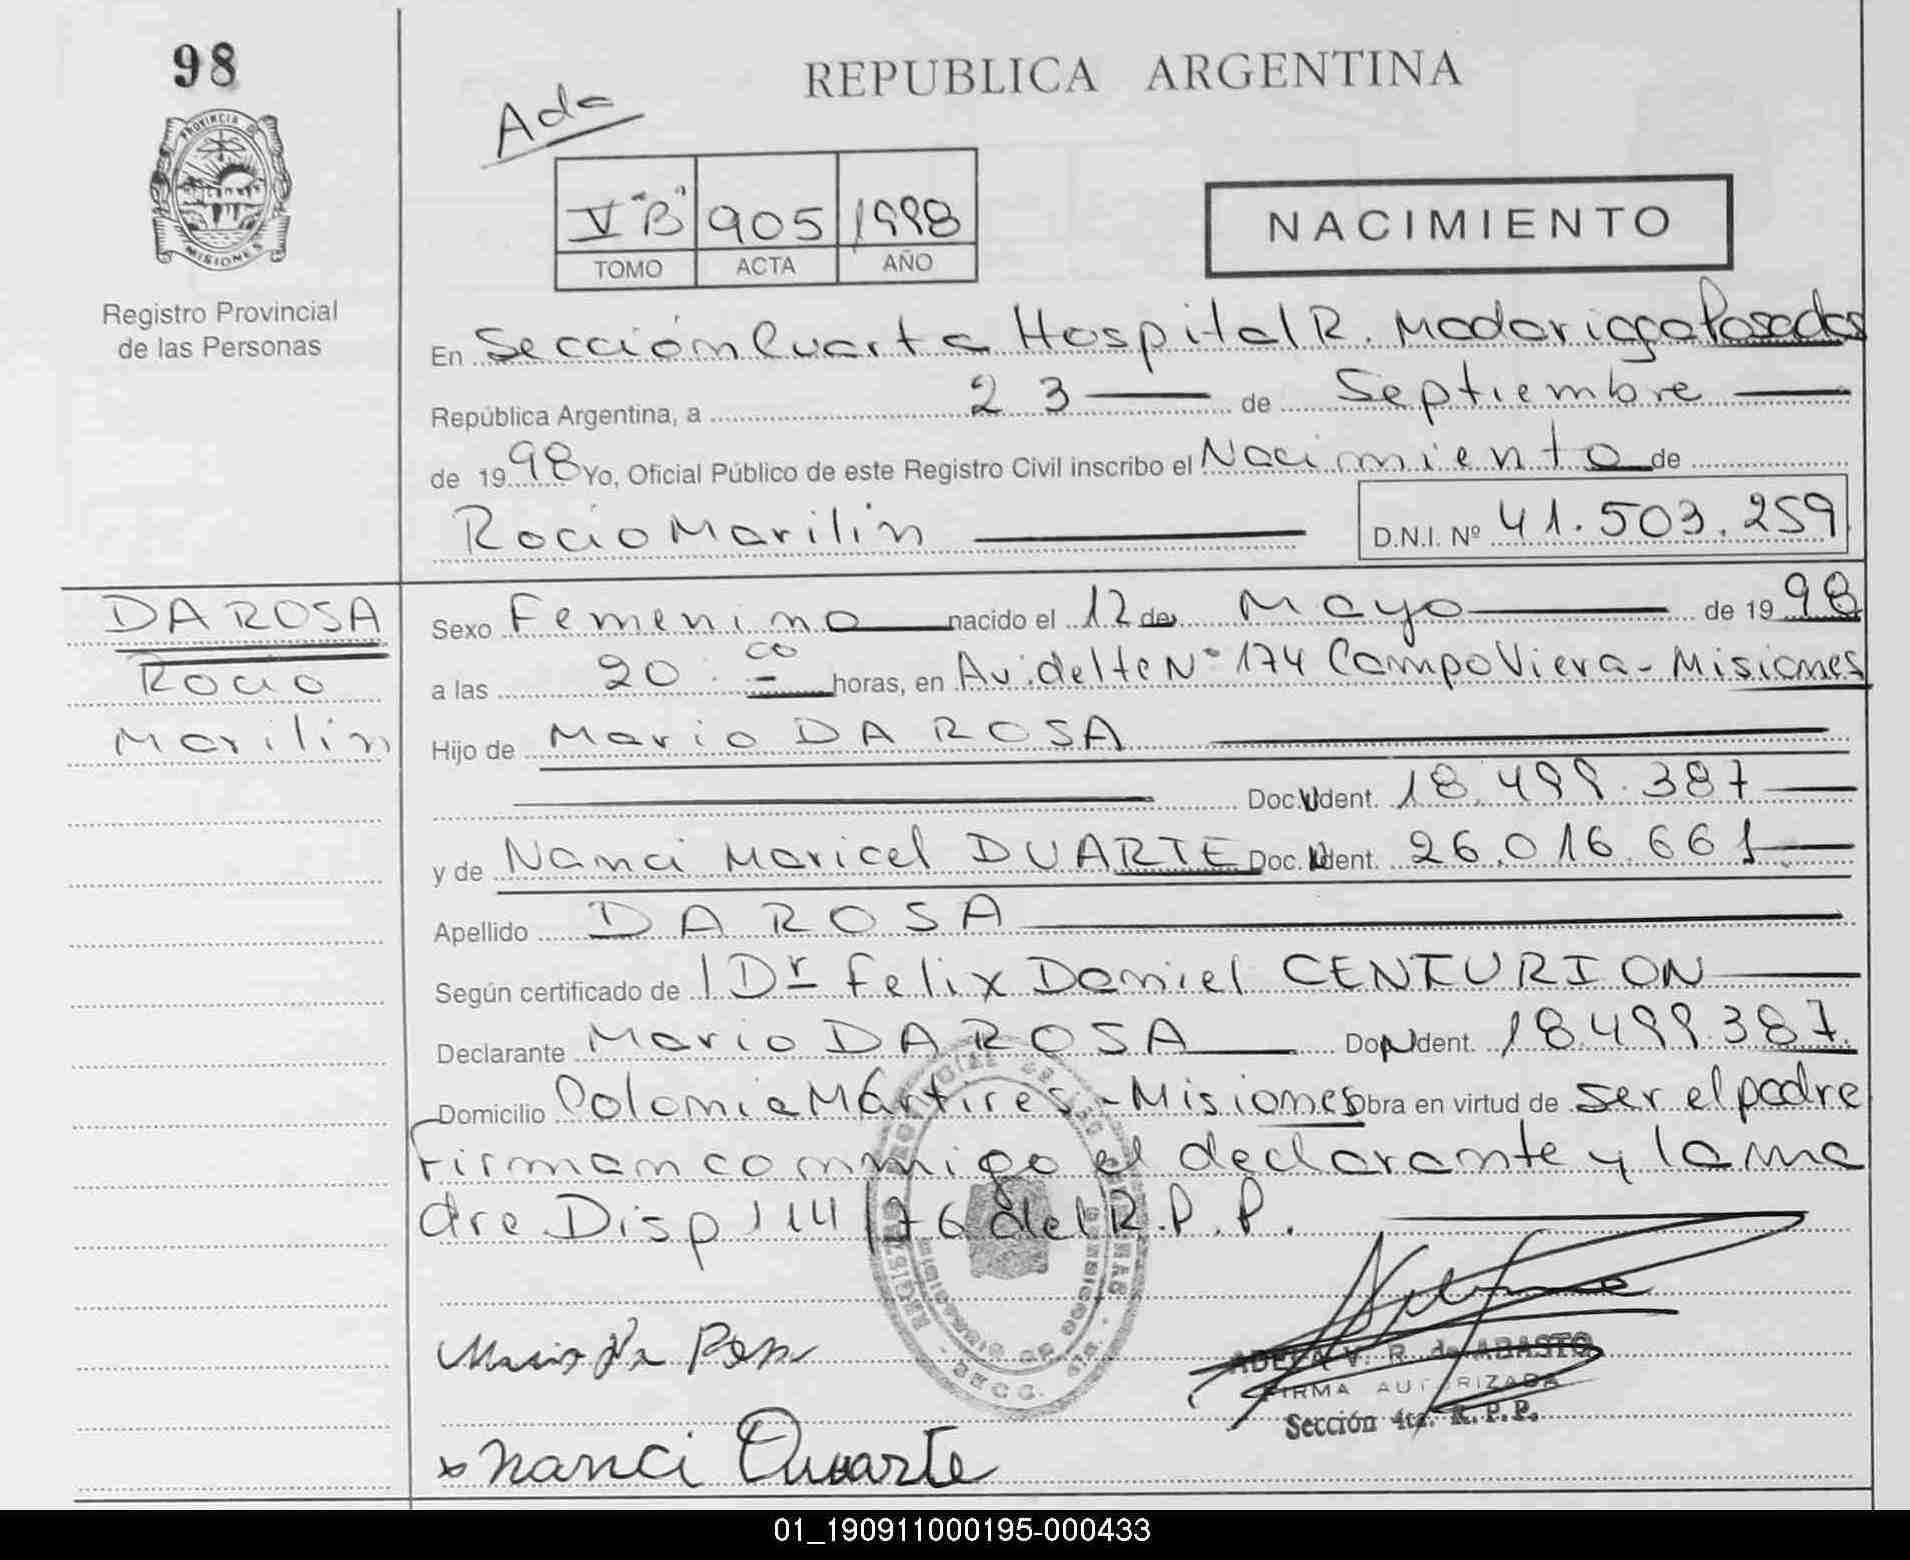 98
REPUBLICA ARGENTINA
Ada
PROVINCIA DE
MISIONES
V "B" 905 1998
TOMO ACTA AÑO
NACIMIENTO
Registro Provincial
de las Personas
En Sección Cuarta Hospital R. Madariaga Posadas
República Argentina, a 23 de Septiembre
de 1998 Yo, Oficial Público de este Registro Civil inscribo el Nacimiento de
Rocio Marilin D.N.I. Nº 41.503.259
DA ROSA
Rocio
Marilin
Sexo Femenino nacido el 12 de Mayo de 1998
a las 20:00 horas, en Av. del te Nº 174 Campo Viera - Misiones
Hijo de Mario DA ROSA
Doc. Ident. 18.499.387
y de Nanci Maricel DUARTE Doc. Ident. 26.016.661
Apellido DA ROSA
Según certificado de Dr Felix Daniel CENTURION
Declarante Mario DA ROSA Doc. Ident. 18.499.387
Domicilio Colonia Mártires - Misiones Obra en virtud de ser el padre
Firman conmigo el declarante y la ma
dre Disp 114/76 del R.P.P.
Mario Da Rosa
ADELA V. R. de ABASTO
FIRMA AUTORIZADA
Sección 4ta. R.P.P.
x Nanci Duarte
01_190911000195-000433